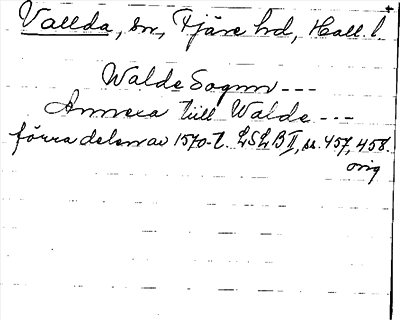 Vallda, sn, Fjäre hd, Hall. l.
Walde Sognn ---
Annexa till Walde ---
förra delen av 1570-t. LSLB II, s. 457, 458.
orig